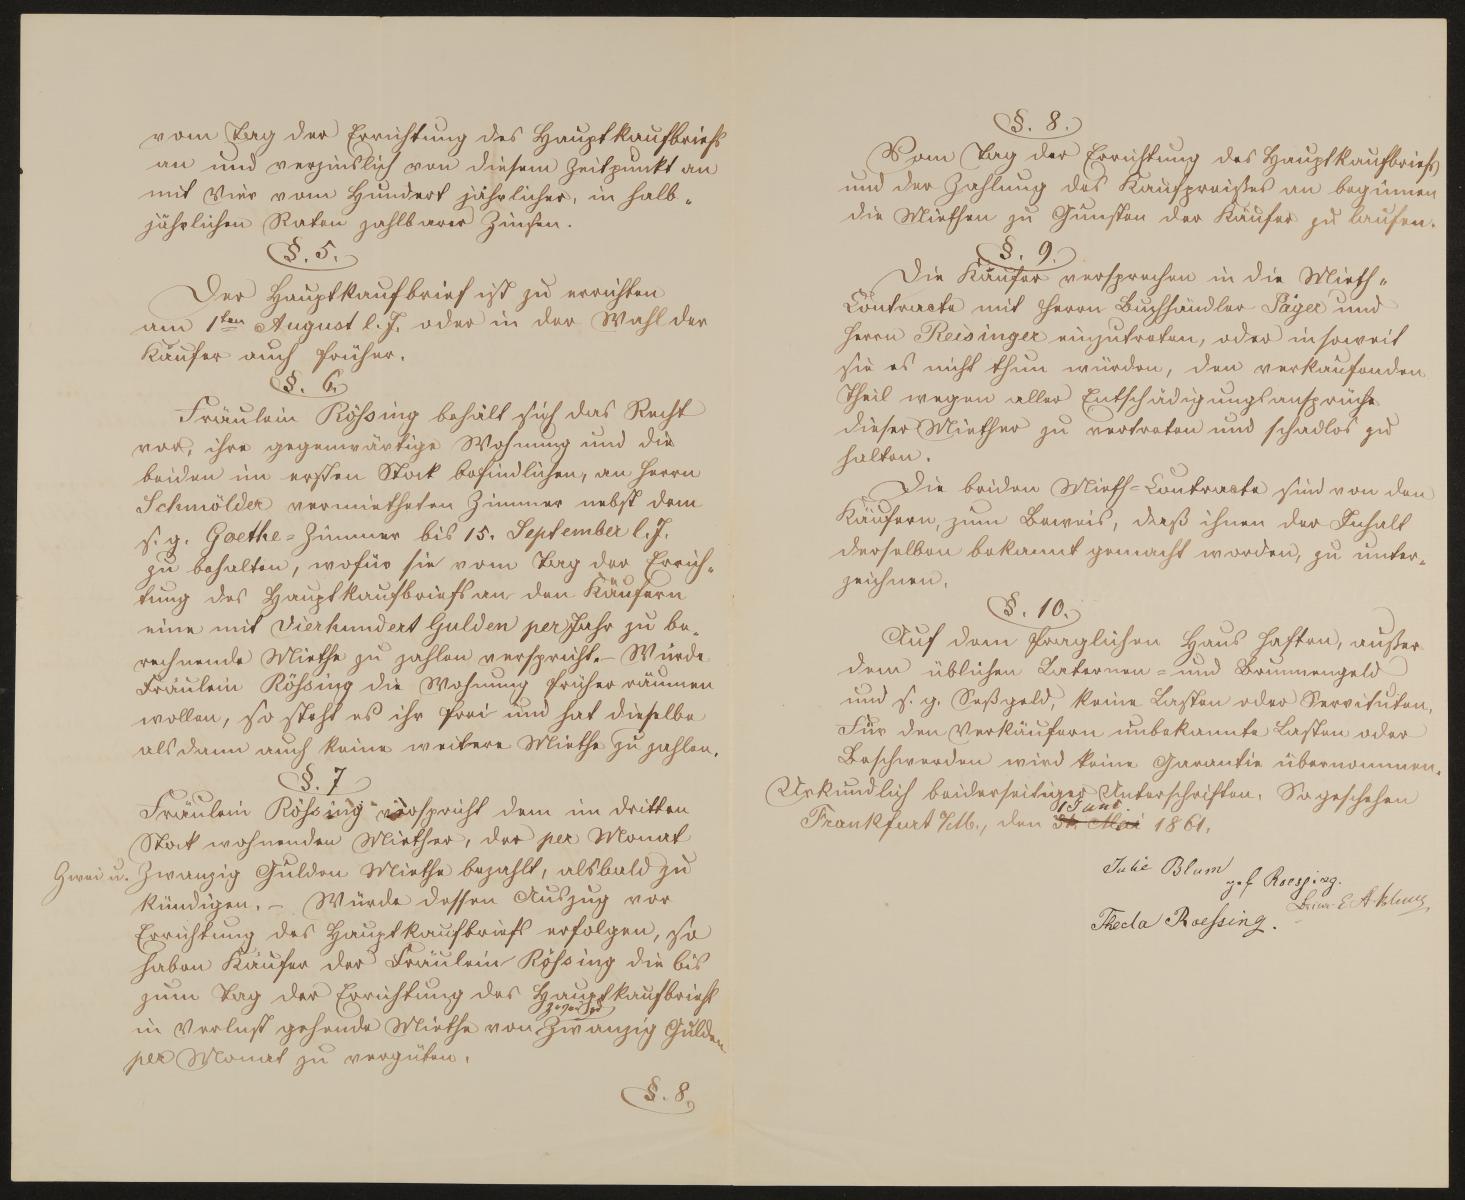 vom Tag der Errichtung des Hauptkaufbriefs
an und verzinslich von diesem Zeitpunkt an
mit Vier vom Hundert jährlicher, in halb-
jährlichen Raten zahlbarer Zinsen.
§. 5.
Der Hauptkaufbrief ist zu errichten
am 1ten August l. J. oder in der Wahl der
Käufer auch früher.
§. 6.
Fräulein Rößing behält sich das Recht
vor, ihre gegenwärtige Wohnung und die
beiden im ersten Stock befindlichen, an Herrn
Schmölder vermietheten Zimmer nebst dem
s. g. Goethe-Zimmer bis 15. September l. J.
zu behalten, wofür sie vom Tag der Errich-
tung des Hauptkaufbriefs an den Käufern
eine mit Vierhundert Gulden per Jahr zu be-
rechnende Miethe zu zahlen verspricht. – Würde
Fräulein Rößing die Wohnung früher räumen
wollen, so steht es ihr frei und hat dieselbe
alsdann auch keine weitere Miethe zu zahlen.
§. 7
Fräulein Rößing verspricht dem im dritten
Stock wohnenden Miether, der per Monat
Zwei u. Zwanzig Gulden Miethe bezahlt, alsbald zu
kündigen. – Würde dessen Auszug vor
Errichtung des Hauptkaufbriefs erfolgen, so
haben Käufer der Fräulein Rößing die bis
zum Tag der Errichtung des Hauptkaufbriefs
in Verlust gehende Miethe von Zwanzig Gulden
per Monat zu vergüten.
§. 8.
§. 8.
Vom Tag der Errichtung des Hauptkaufbriefs
und der Zahlung des Kaufpreißes an beginnen
die Miethen zu Gunsten der Käufer zu laufen.
§. 9.
Die Käufer versprechen in die Mieth-
Contracte mit Herrn Buchhändler Jäger und
Herrn Reisinger einzutreten, oder insoweit
sie es nicht thun würden, den verkaufenden
Theil wegen aller Entschädigungsansprüche
dieser Miether zu vertreten und schadlos zu
halten.
Die beiden Mieth-Contracte sind von den
Käufern, zum Beweis, daß ihnen der Inhalt
derselben bekannt gemacht worden, zu unter-
zeichnen.
§. 10.
Auf dem fraglichen Haus haften, außer
dem üblichen Laternen- und Brunnengeld
und s. g. Seßgeld, keine Lasten oder Servituten.
Für den Verkäufern unbekannte Lasten oder
Beschwerden wird keine Garantie übernommen.
Urkundlich beiderseitiger Unterschriften. So geschehen
1 Juni
Frankfurt a/M., den 31. Mai 1861.
Julie Blum
geb Roessing.
Thecla Roessing.